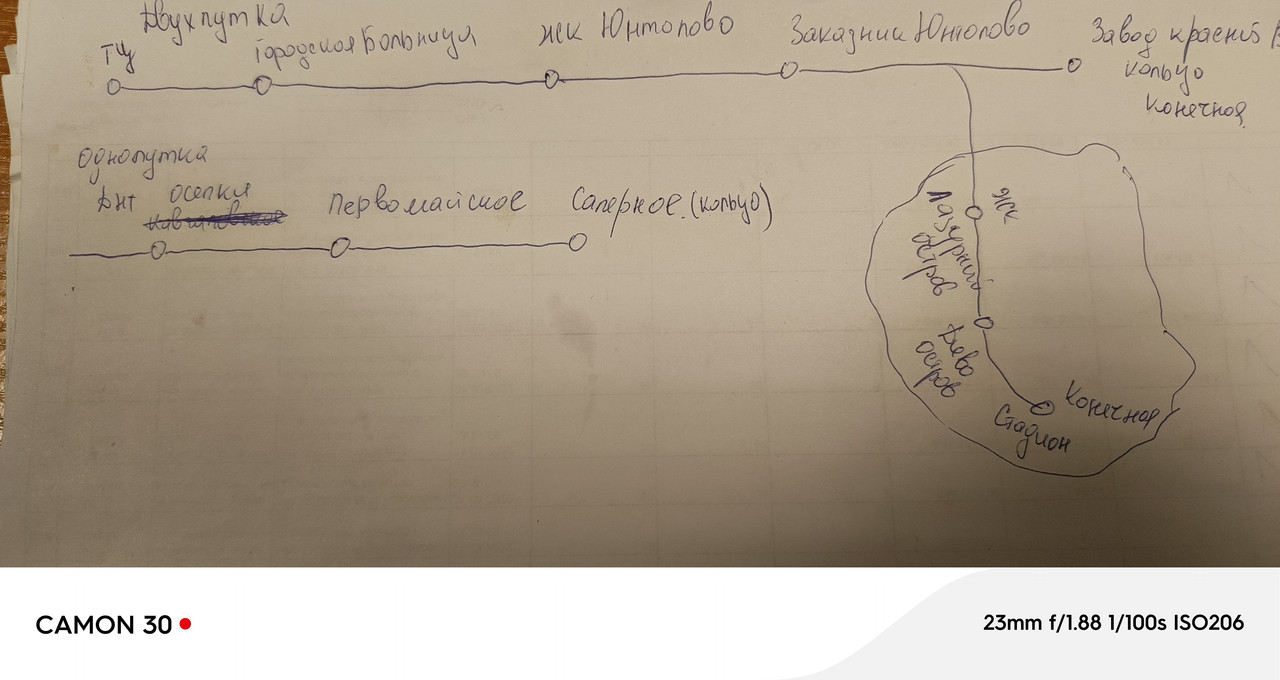 Двухпутка
ТЦ
Городская Больница
ЖК Юнтолово
Заказник Юнтолово
Завод красный
кольцо
Конечная
Однопутка
ДНТ осельки
Первомайское
Саперное (кольцо)
ЖК
Лазурный
остров
Дево
остров
Стадион
Конечная
CAMON 30
23mm f/1.88 1/100s ISO206